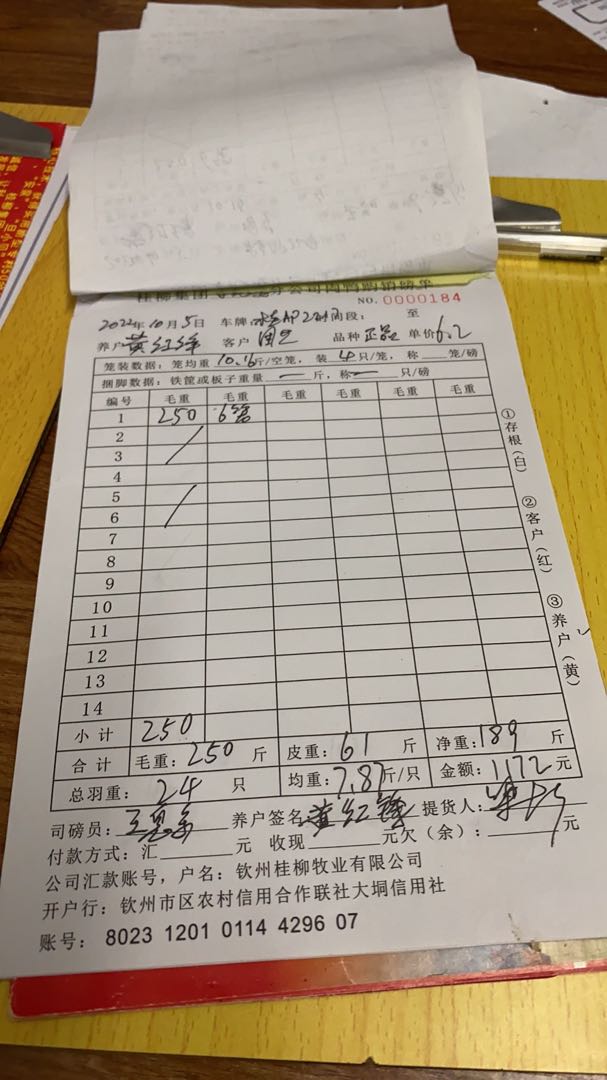 NO. 0000184
2022年10月5日 车牌: 时间段: 至
养户黄红锋 客户 品种 正品 单价6.2
笼装数据: 笼均重 10.16斤/空笼, 装 4只/笼, 称 笼/磅
捆脚数据: 铁筐或板子重量 — 斤, 称— 只/磅
编号 毛重 毛重 毛重 毛重 毛重 毛重
1 250 6笼
2
3
4
5
6
7
8
9
10
11
12
13
14
小计 250
合计 毛重: 250 斤 皮重: 61 斤 净重: 189 斤
总羽重: 24 只 均重: 7.87斤/只 金额: 1172元
①存根(白)
②客户(红)
③养户(黄)
司磅员: 养户签名: 黄红锋 提货人:
付款方式: 汇 元 收现 元欠(余): 元
公司汇款账号, 户名: 钦州桂柳牧业有限公司
开户行: 钦州市区农村信用合作联社大垌信用社
账号: 8023 1201 0114 4296 07